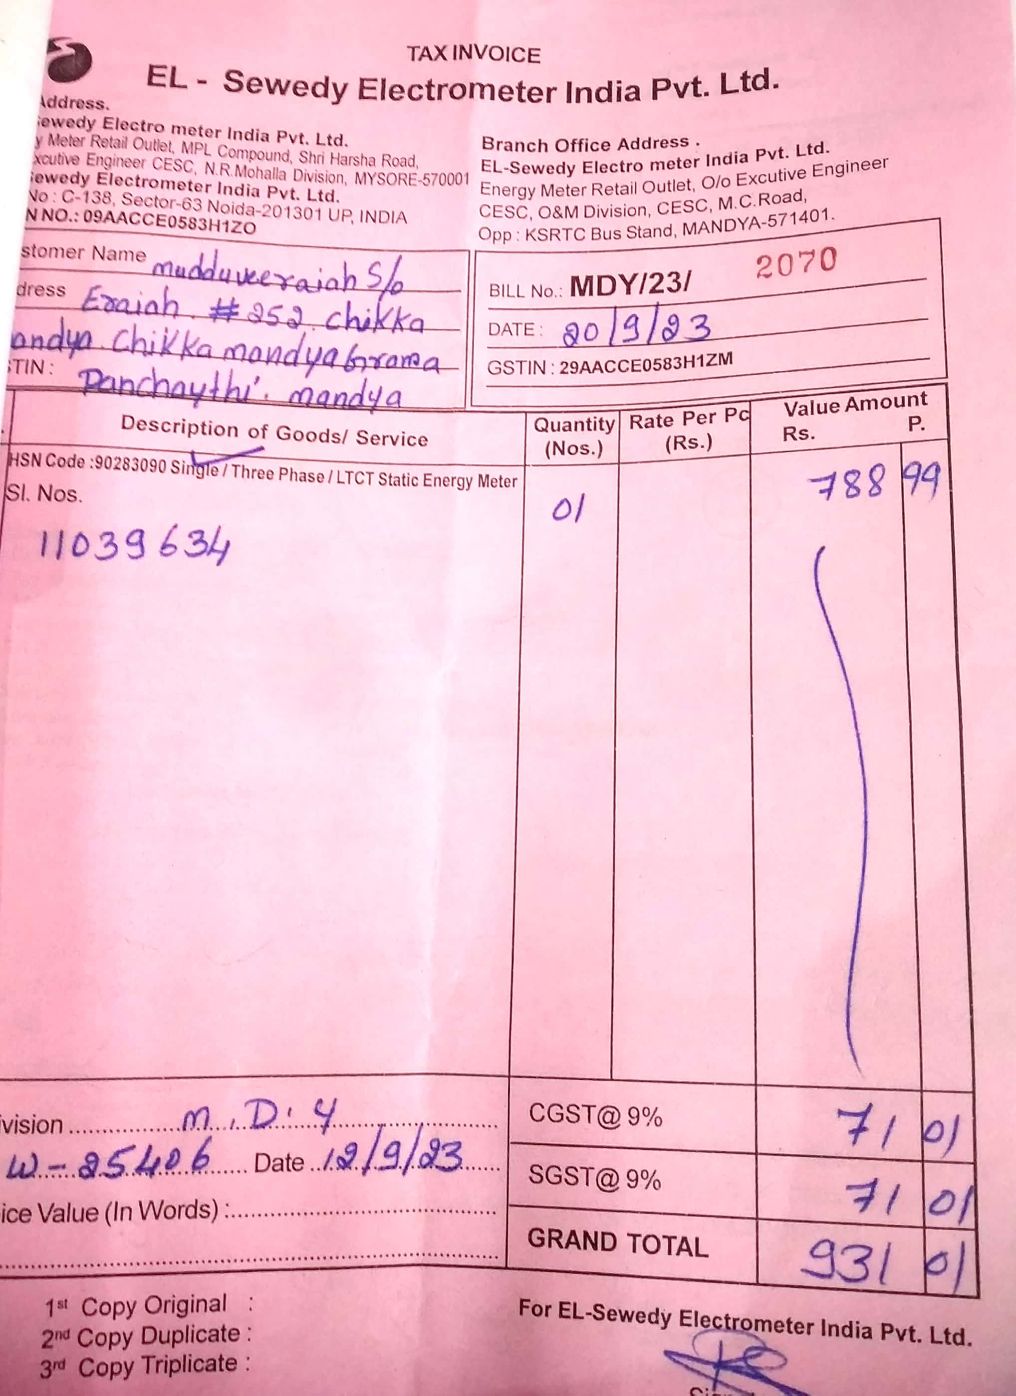 TAX INVOICE
EL - Sewedy Electrometer India Pvt. Ltd.
Address.
ewedy Electro meter India Pvt. Ltd.
y Meter Retail Outlet, MPL Compound, Shri Harsha Road,
xcutive Engineer CESC, N.R.Mohalla Division, MYSORE-570001
ewedy Electrometer India Pvt. Ltd.
No : C-138, Sector-63 Noida-201301 UP, INDIA
N NO.: 09AACCE0583H1ZO
Branch Office Address :
EL-Sewedy Electro meter India Pvt. Ltd.
Energy Meter Retail Outlet, O/o Excutive Engineer
CESC, O&M Division, CESC, M.C.Road,
Opp : KSRTC Bus Stand, MANDYA-571401.
stomer Name mudduveeraiah S/o
dress Eraiah. #252. Chikka
andya. Chikkamandya Grama
TIN : Panchaythi. mandya
BILL No.: MDY/23/ 2070
DATE : 20/9/23
GSTIN : 29AACCE0583H1ZM
Description of Goods/ Service Quantity (Nos.) Rate Per Pc (Rs.) Value Amount Rs. P.
HSN Code :90283090 Single / Three Phase / LTCT Static Energy Meter
Sl. Nos. 01 788 99
11039634
vision M.D.Y CGST@ 9% 71 01
W-25406 Date 12/9/23 SGST@ 9% 71 01
ice Value (In Words) : GRAND TOTAL 931 01
1st Copy Original :
2nd Copy Duplicate :
3rd Copy Triplicate :
For EL-Sewedy Electrometer India Pvt. Ltd.